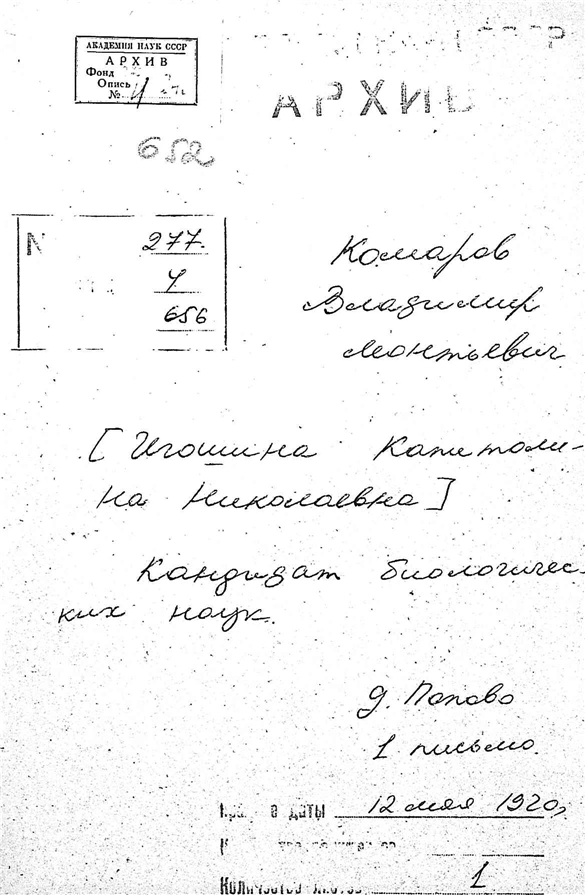 АКАДЕМИЯ НАУК СССР
АРХИВ
Фонд
Опись
№
АРХИВ
652
277.
4
656
Комаров
Владимир
Леонтьевич
[Игошина Капетоли-
на Николаевна]
Кандидат биологичес-
ких наук.
д. Попово
1 письмо.
даты 12 мая 1920г
Количество
1